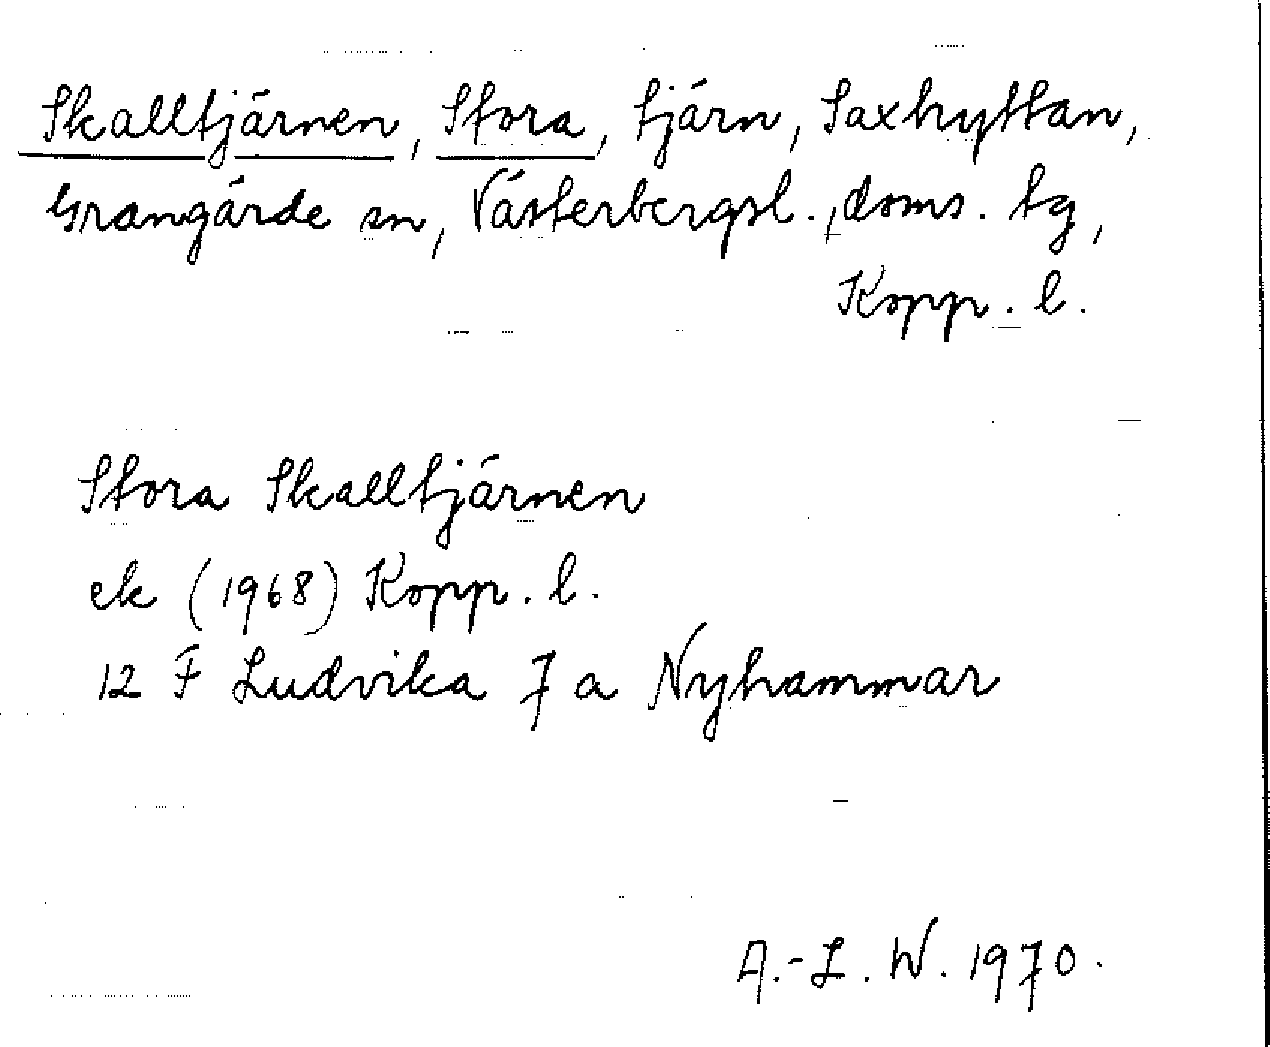 Skalltjärnen, Stora, tjärn, Saxhyttan,
Grangärde sn, Västerbergsl., doms. tg,
Kopp. l.
Stora Skalltjärnen
ek (1968) Kopp. l.
12 F Ludvika 7 a Nyhammar
A.-L. W. 1970.